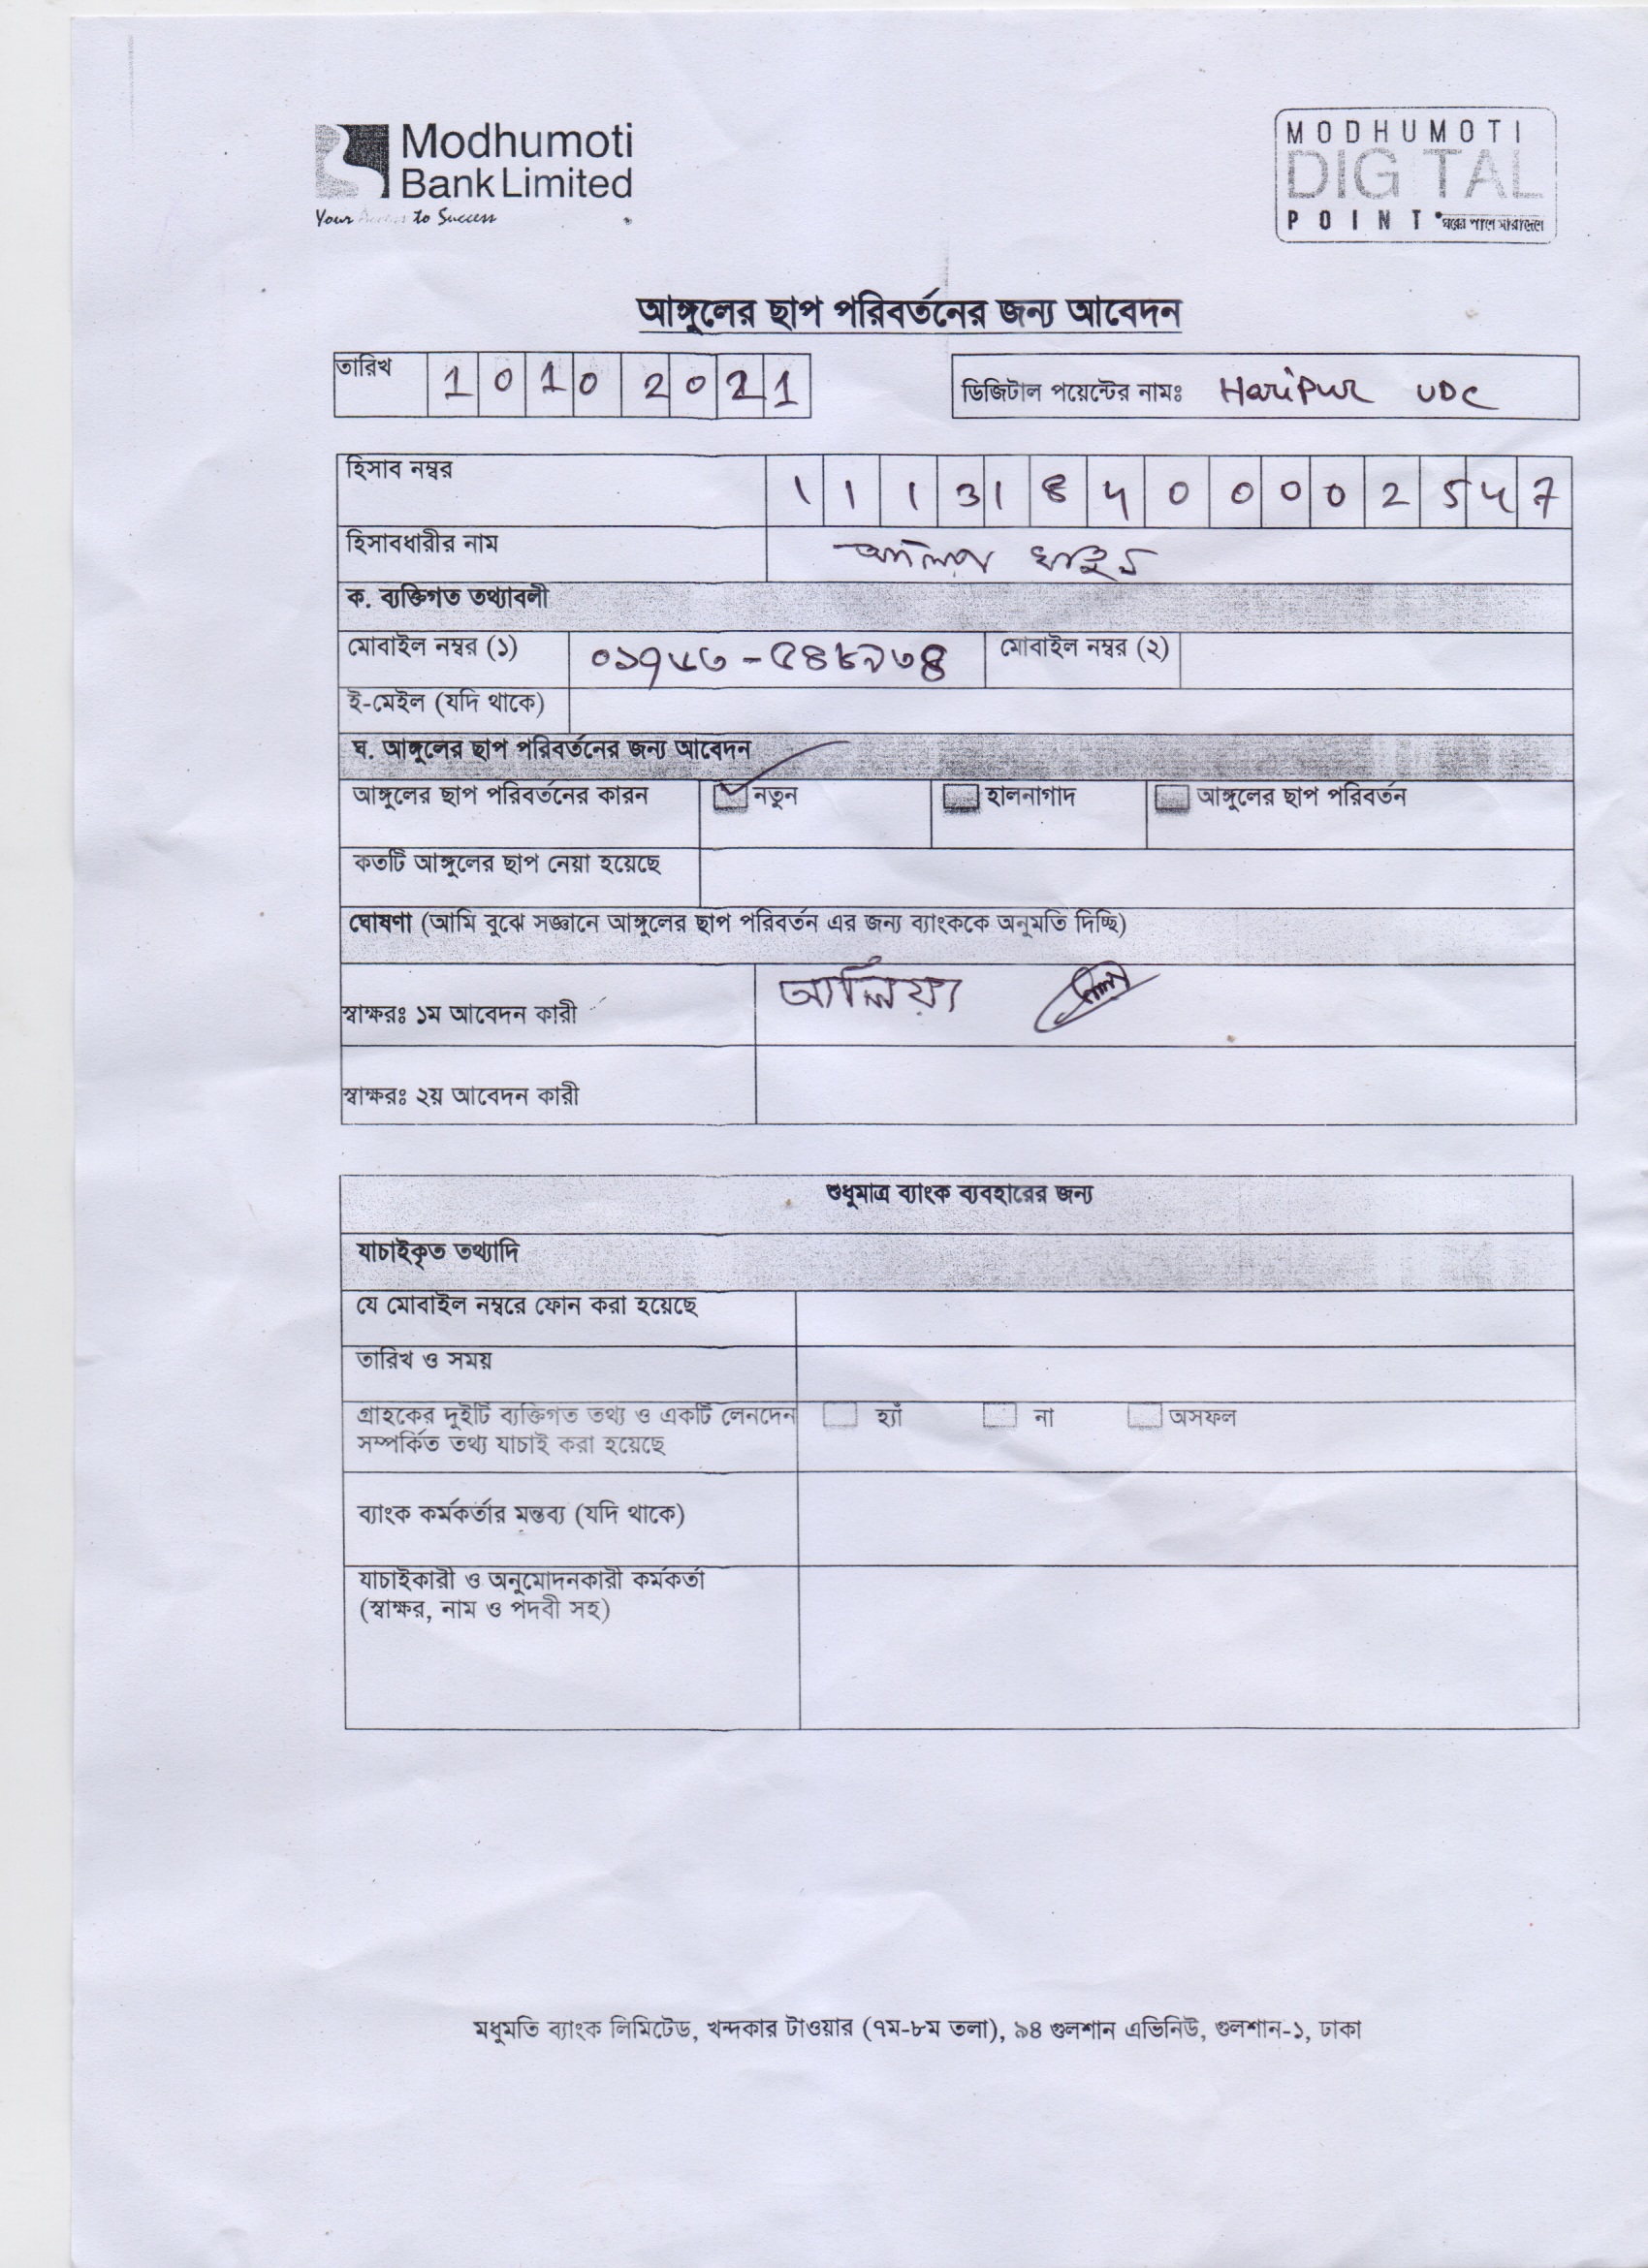 Modhumoti
Bank Limited
Your Access to Success
MODHUMOTI
DIGITAL
POINT
আঙ্গুলের ছাপ পরিবর্তনের জন্য আবেদন
তারিখ 1 0 1 0 2 0 2 1
ডিজিটাল পয়েন্টের নামঃ Haripur UDC
হিসাব নম্বর 1 1 1 3 1 8 4 0 0 0 0 2 5 4 7
হিসাবধারীর নাম
ক. ব্যক্তিগত তথ্যাবলী
মোবাইল নম্বর (১) মোবাইল নম্বর (২)
ই-মেইল (যদি থাকে)
ঘ. আঙ্গুলের ছাপ পরিবর্তনের জন্য আবেদন
আঙ্গুলের ছাপ পরিবর্তনের কারন নতুন হালনাগাদ আঙ্গুলের ছাপ পরিবর্তন
কতটি আঙ্গুলের ছাপ নেয়া হয়েছে
ঘোষণা (আমি বুঝে সজ্ঞানে আঙ্গুলের ছাপ পরিবর্তন এর জন্য ব্যাংককে অনুমতি দিচ্ছি)
স্বাক্ষরঃ ১ম আবেদন কারী
স্বাক্ষরঃ ২য় আবেদন কারী
শুধুমাত্র ব্যাংক ব্যবহারের জন্য
যাচাইকৃত তথ্যাদি
যে মোবাইল নম্বরে ফোন করা হয়েছে
তারিখ ও সময়
গ্রাহকের দুইটি ব্যক্তিগত তথ্য ও একটি লেনদেন হ্যাঁ না অসফল
সম্পর্কিত তথ্য যাচাই করা হয়েছে
ব্যাংক কর্মকর্তার মন্তব্য (যদি থাকে)
যাচাইকারী ও অনুমোদনকারী কর্মকর্তা
(স্বাক্ষর, নাম ও পদবী সহ)
মধুমতি ব্যাংক লিমিটেড, খন্দকার টাওয়ার (৭ম-৮ম তলা), ৯৪ গুলশান এভিনিউ, গুলশান-১, ঢাকা